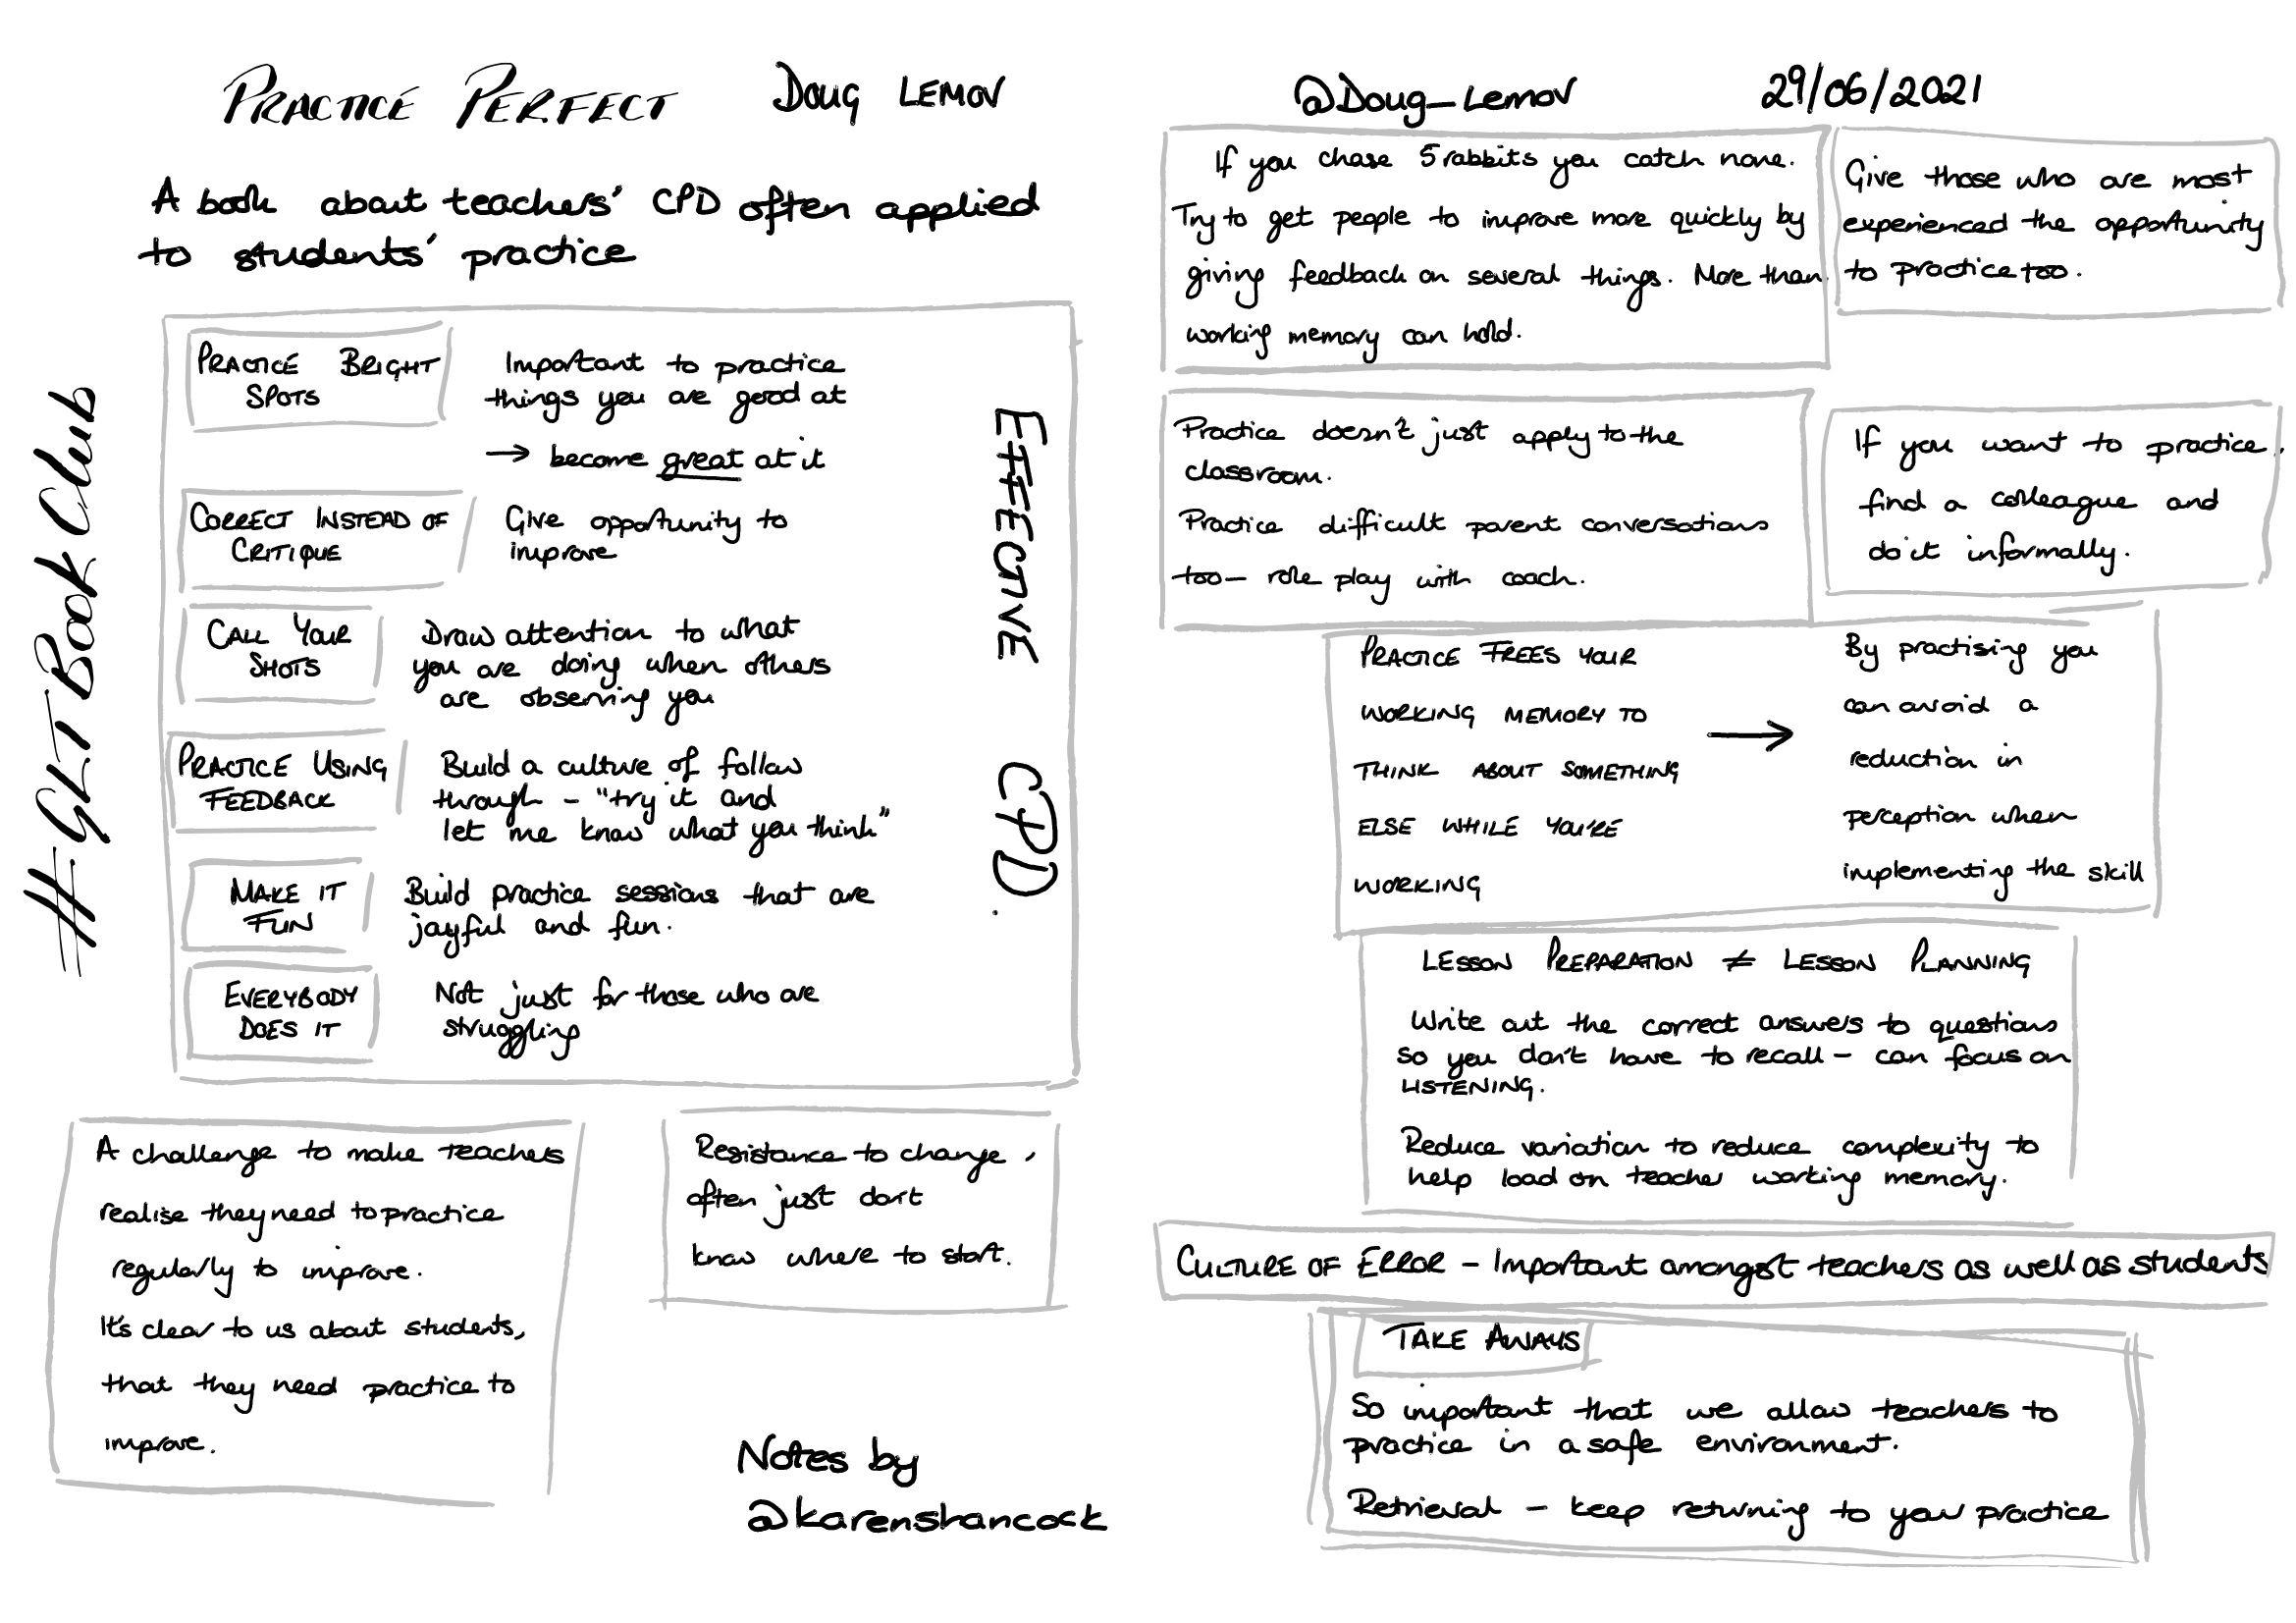 PRACTICE PERFECT
DOUG LEMOV
@Doug_Lemov
29/06/2021
A book about teachers' CPD often applied
to students' practice
#GLTBookClub
PRACTICE BRIGHT
SPOTS
Important to practice
things you are good at
→ become great at it
CORRECT INSTEAD OF
CRITIQUE
Give opportunity to
improve
CALL YOUR
SHOTS
Draw attention to what
you are doing when others
are observing you
PRACTICE USING
FEEDBACK
Build a culture of follow
through - "try it and
let me know what you think"
MAKE IT
FUN
Build practice sessions that are
joyful and fun.
EVERYBODY
DOES IT
Not just for those who are
struggling
EFFECTIVE CPD.
A challenge to make teachers
realise they need to practice
regularly to improve.
It's clear to us about students,
that they need practice to
improve.
Resistance to change,
often just don't
know where to start.
Notes by
@karenshancock
If you chase 5 rabbits you catch none.
Try to get people to improve more quickly by
giving feedback on several things. More than
working memory can hold.
Give those who are most
experienced the opportunity
to practice too.
Practice doesn't just apply to the
classroom.
Practice difficult parent conversations
too - role play with coach.
If you want to practice,
find a colleague and
do it informally.
PRACTICE FREES YOUR
WORKING MEMORY TO
THINK ABOUT SOMETHING
ELSE WHILE YOU'RE
WORKING
→
By practising you
can avoid a
reduction in
perception when
implementing the skill
LESSON PREPARATION ≠ LESSON PLANNING
Write out the correct answers to questions
so you don't have to recall - can focus on
LISTENING.
Reduce variation to reduce complexity to
help load on teacher working memory.
CULTURE OF ERROR - Important amongst teachers as well as students
TAKE AWAYS
So important that we allow teachers to
practice in a safe environment.
Retrieval - keep returning to your practice